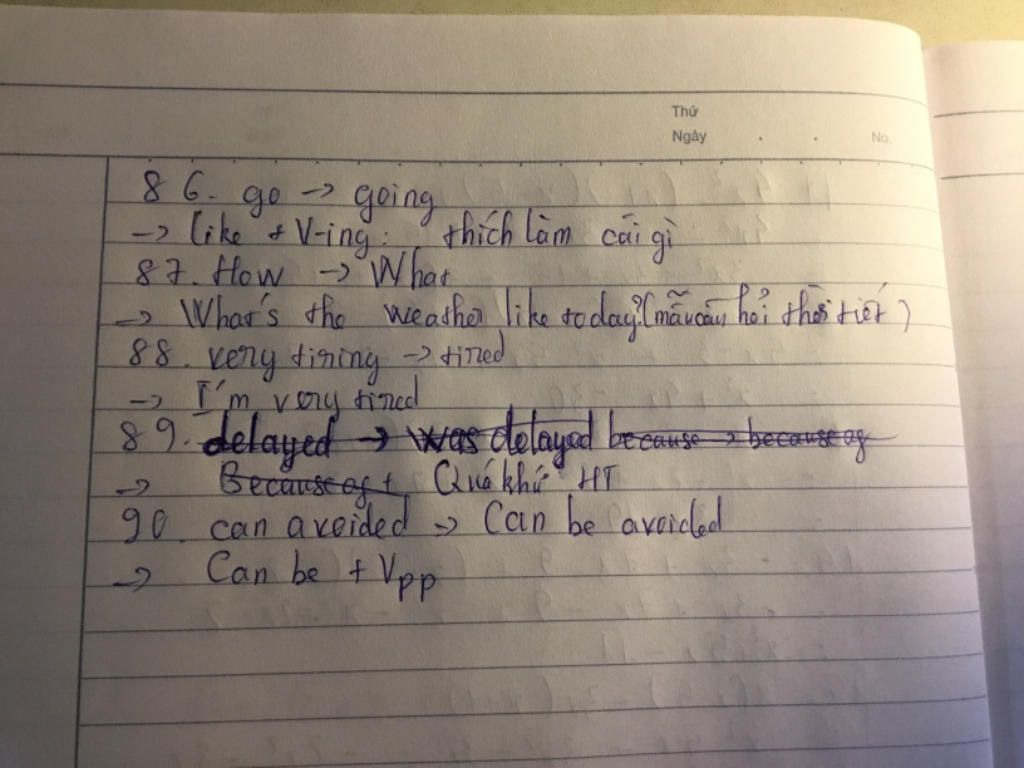 Thứ
Ngày . . No.
86. go → going
→ like + V-ing: thích làm cái gì
87. How → What
→ What's the weather like today? (mẫu câu hỏi thời tiết)
88. very tiring → tired
→ I'm very tired
89. delayed → was delayed because → because of
→ Because of + Quá khứ HT
90. can avoided → Can be avoided
→ Can be + Vpp